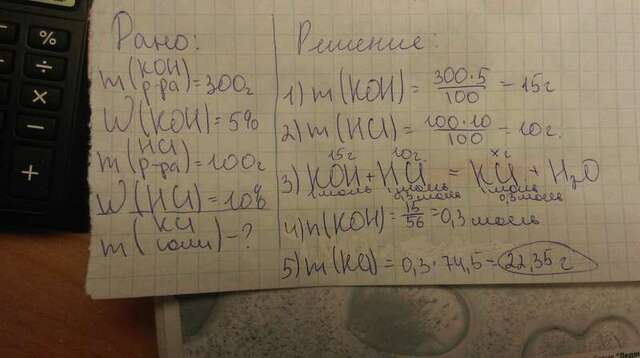 Дано:
m(KOH р-ра)=300г
W(KOH)=5%
m(HCl р-ра)=100г
W(HCl)=10%
m(KCl соли)-?
Решение:
1) m(KOH) = 300·5/100 = 15г
2) m(HCl) = 100·10/100 = 10г.
15г 10г xг
3) KOH + HCl = KCl + H₂O
1моль 1моль 1моль
0,3моль 0,3моль
4) n(KOH) = 15/56 = 0,3 моль
5) m(KCl) = 0,3·74,5 = 22,35 г
÷
×
-
+